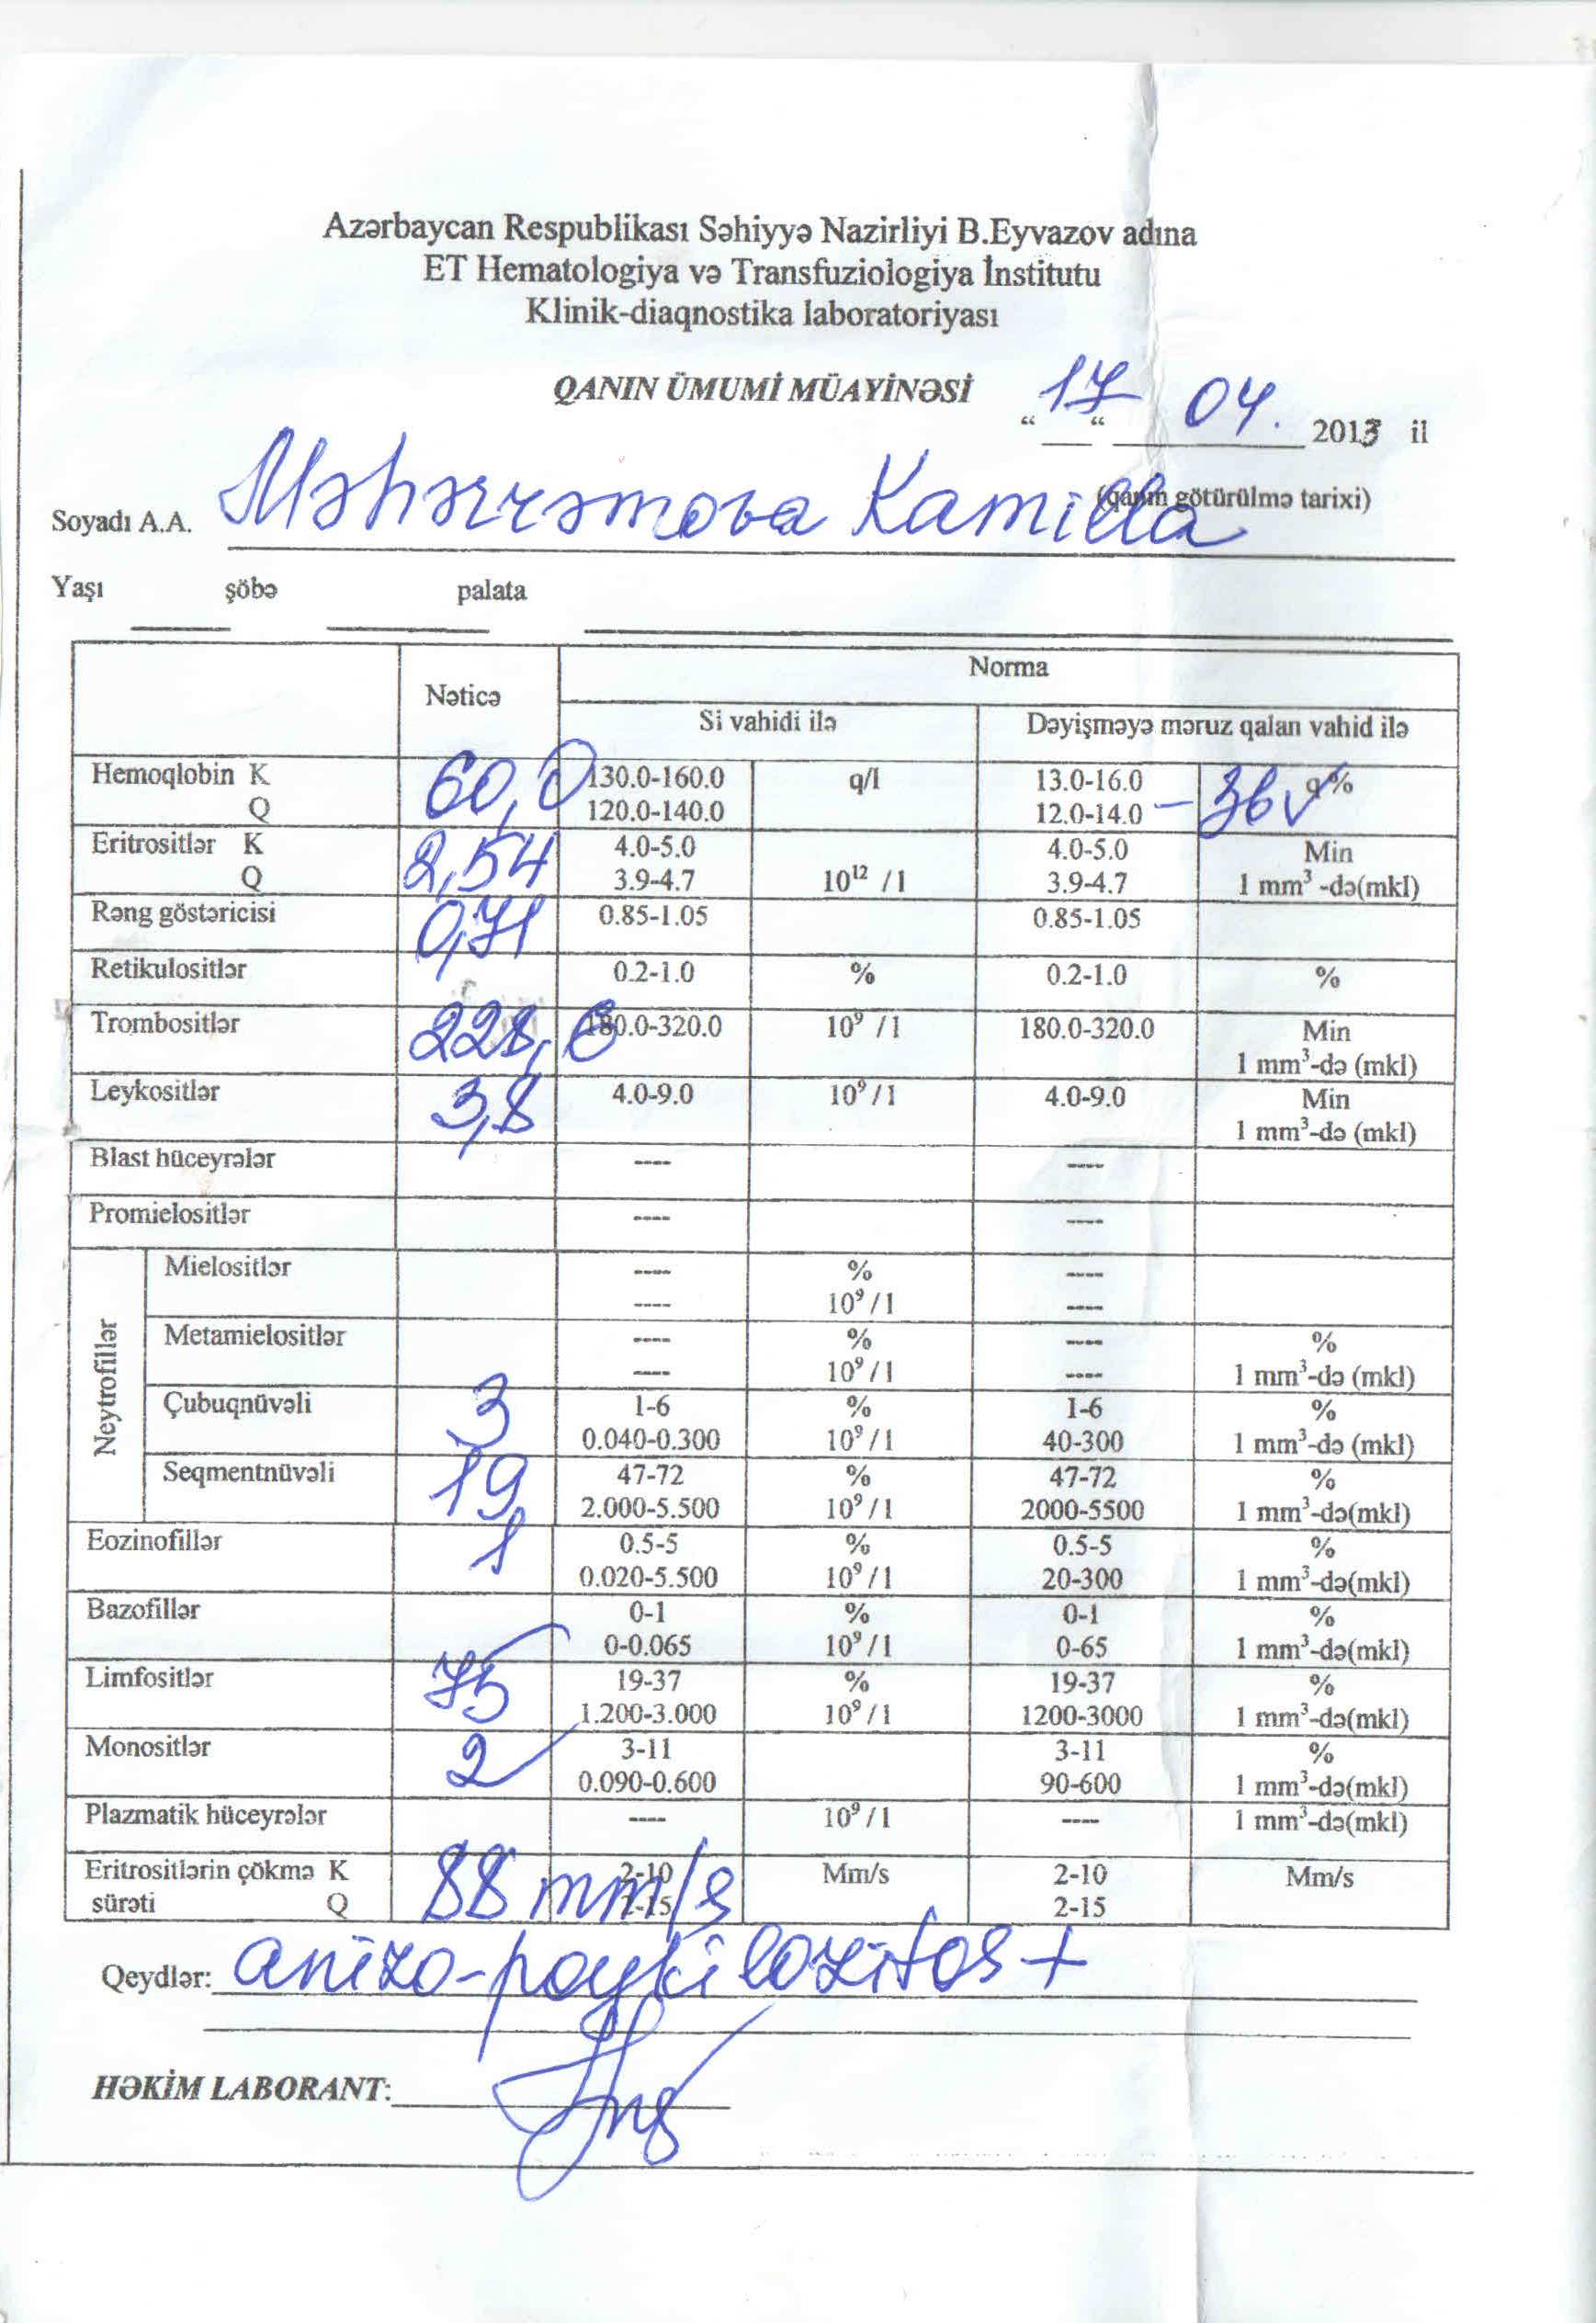 Azərbaycan Respublikası Səhiyyə Nazirliyi B.Eyvazov adına
ET Hematologiya və Transfuziologiya İnstitutu
Klinik-diaqnostika laboratoriyası
QANIN ÜMUMİ MÜAYİNƏSİ
“17“ 04. 2013 il
(qanın götürülmə tarixi)
Soyadı A.A. Məhərrəmova Kamilla
Yaşı şöbə palata
Nəticə Norma
Si vahidi ilə Dəyişməyə məruz qalan vahid ilə
Hemoqlobin K 60,0 130.0-160.0 q/l 13.0-16.0 q%
Q 120.0-140.0 12.0-14.0 – 36
Eritrositlər K 2,54 4.0-5.0 4.0-5.0 Min
Q 3.9-4.7 10¹² /l 3.9-4.7 1 mm³ -də(mkl)
Rəng göstəricisi 0,71 0.85-1.05 0.85-1.05
Retikulositlər 0.2-1.0 % 0.2-1.0 %
Trombositlər 228, 180.0-320.0 10⁹ /l 180.0-320.0 Min
1 mm³-də (mkl)
Leykositlər 3,8 4.0-9.0 10⁹/l 4.0-9.0 Min
1 mm³-də (mkl)
Blast hüceyrələr ---- ----
Promielositlər ---- ----
Neytrofillər
Mielositlər ---- % ----
---- 10⁹/l ----
Metamielositlər ---- % ---- %
---- 10⁹/l ---- 1 mm³-də (mkl)
Çubuqnüvəli 3 1-6 % 1-6 %
0.040-0.300 10⁹/l 40-300 1 mm³-də (mkl)
Seqmentnüvəli 19 47-72 % 47-72 %
2.000-5.500 10⁹/l 2000-5500 1 mm³-də(mkl)
Eozinofillər 1 0.5-5 % 0.5-5 %
0.020-5.500 10⁹/l 20-300 1 mm³-də(mkl)
Bazofillər 0-1 % 0-1 %
0-0.065 10⁹/l 0-65 1 mm³-də(mkl)
Limfositlər 75 19-37 % 19-37 %
1.200-3.000 10⁹/l 1200-3000 1 mm³-də(mkl)
Monositlər 2 3-11 3-11 %
0.090-0.600 90-600 1 mm³-də(mkl)
Plazmatik hüceyrələr ---- 10⁹/l ---- 1 mm³-də(mkl)
Eritrositlərin çökmə K 88 mm/s 2-10 Mm/s 2-10 Mm/s
sürəti Q 2-15 2-15
Qeydlər: anizo-poykilozitos +
HƏKİM LABORANT: